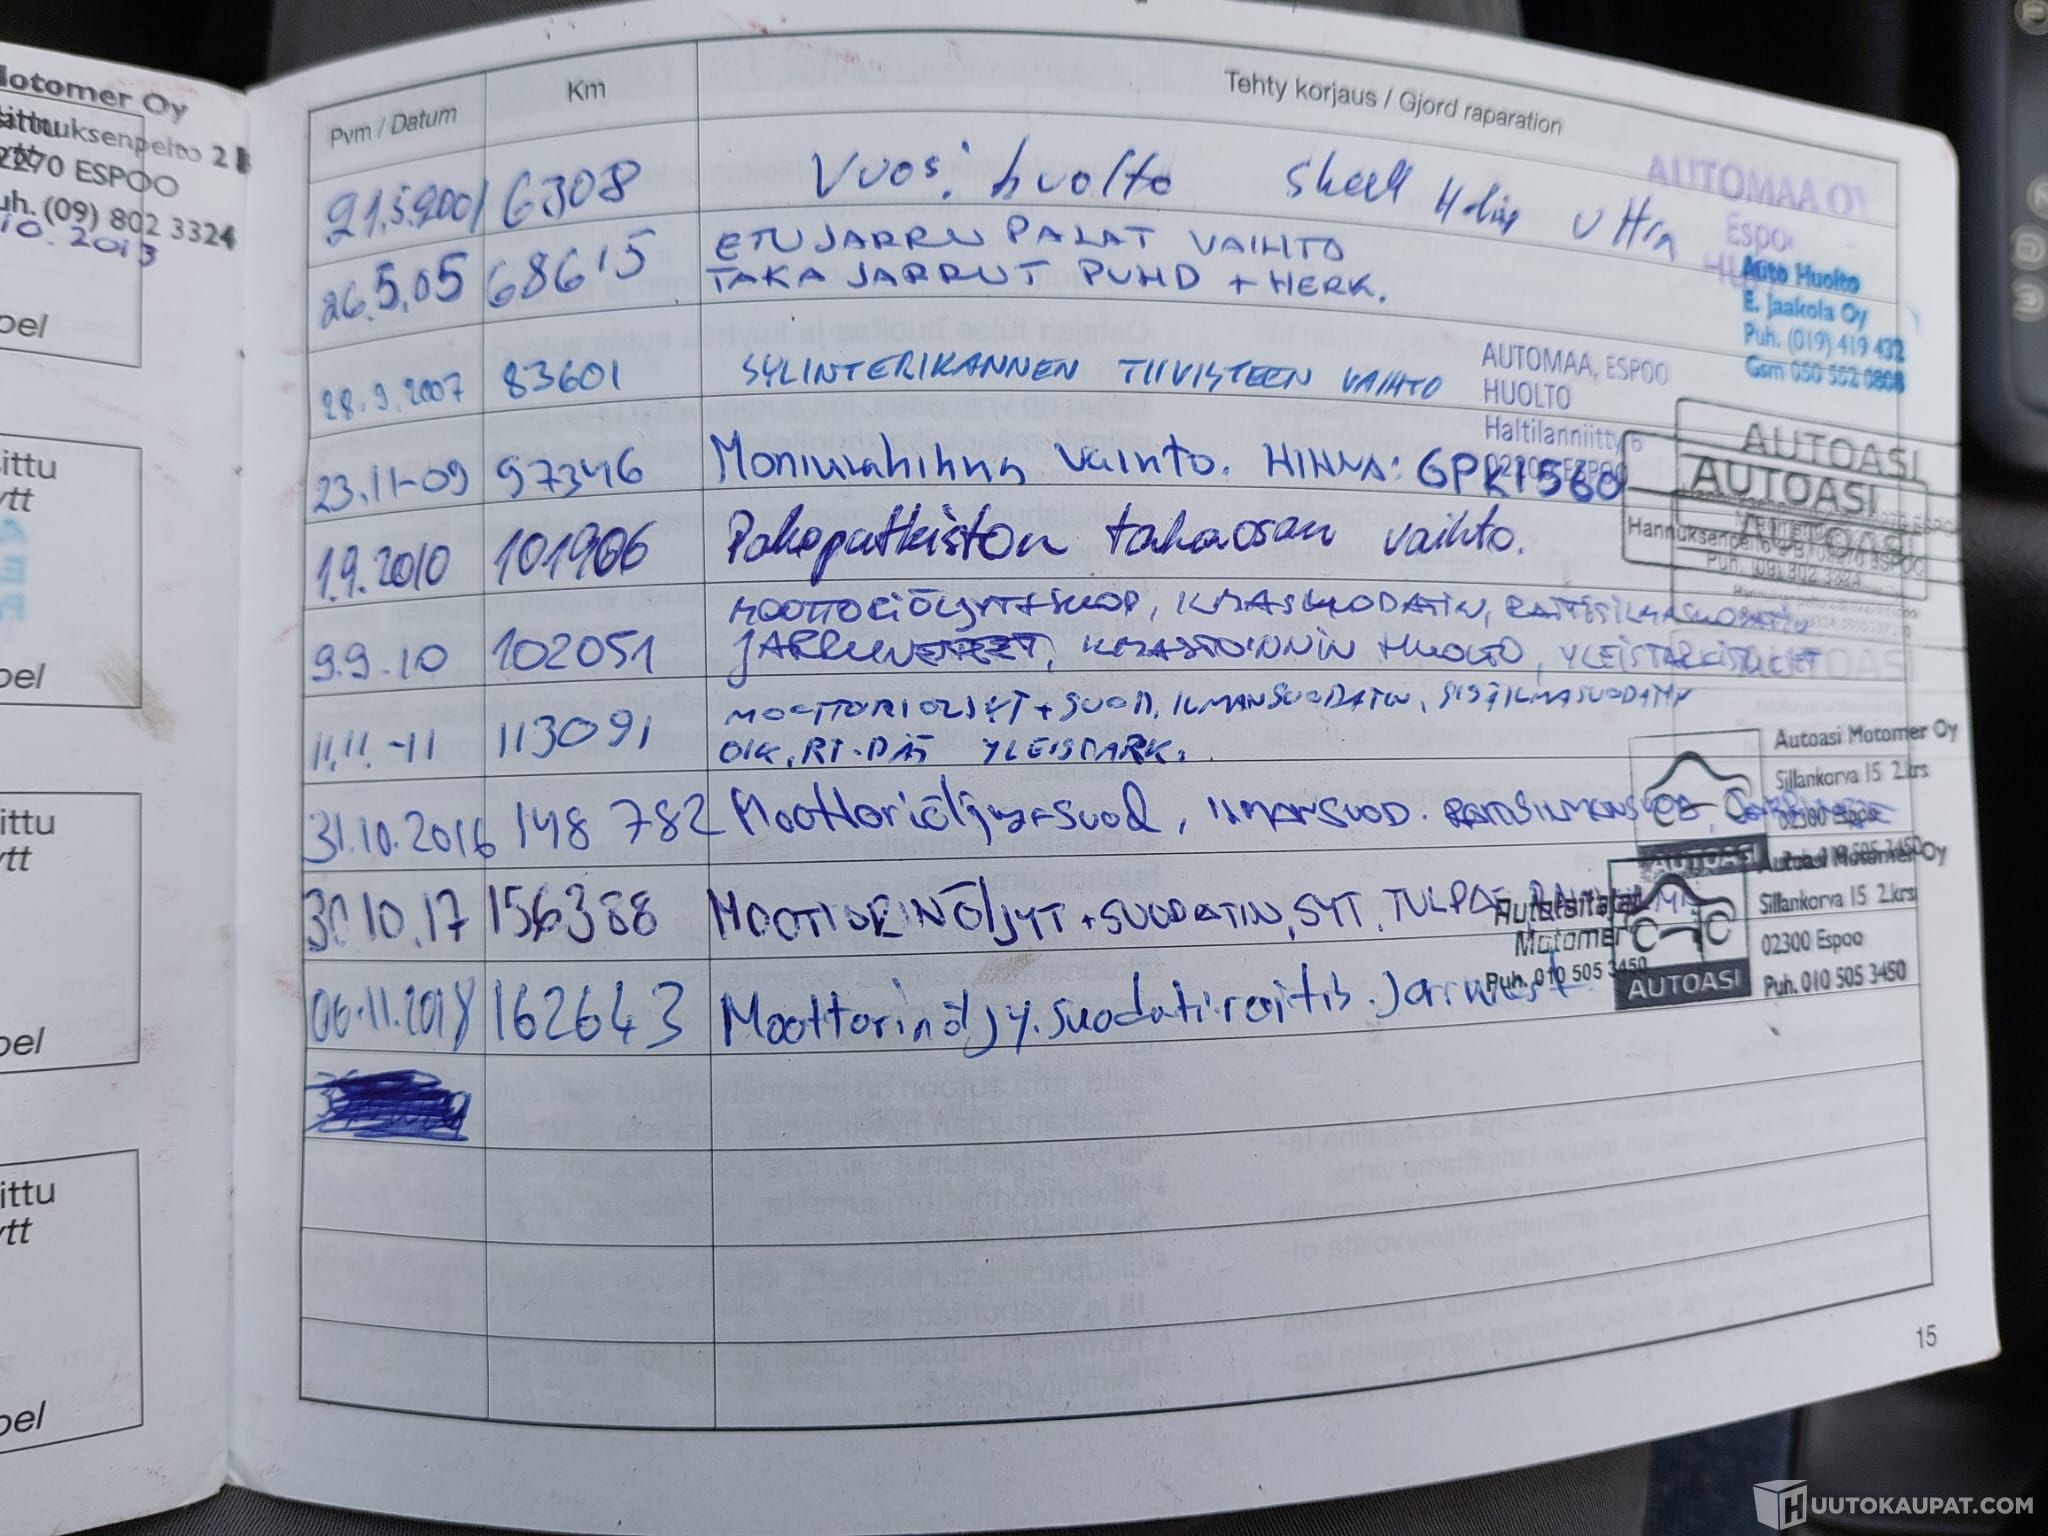 Motomer Oy
Hannuksenpelto 2 B
02270 ESPOO
Puh. (09) 802 3324
10.2013
pel
ittu
ytt
pel
ittu
ytt
pel
ittu
ytt
pel
Pvm / Datum Km Tehty korjaus / Gjord raparation
21.5.2001 6308 Vuosi huolto Shell Helix Ultra
AUTOMAA OY
Espoo
26.5.05 68615 ETUJARRU PALAT VAIHTO
TAKAJARRUT PUHD + HERK.
Auto Huolto
E. Jaakola Oy
Puh. (019) 419 432
Gsm 050 552 0808
28.9.2007 83601 SYLINTERIKANNEN TIIVISTEEN VAIHTO
AUTOMAA, ESPOO
HUOLTO
Haltilanniitty 6
02200 ESPOO
23.11-09 97346 Moniurahihna vaihto. HINNA: 6PK1560
AUTOASI
AUTOASI
Hannuksenpelto 2 B, 02270 ESPOO
Puh. (09) 802 3324
1.9.2010 101906 Pakoputkiston takaosan vaihto.
9.9.10 102051 MOOTTORIÖLJYT+SUOD, ILMASUODATIN, RAITISILMASUODATIN
JARRUNESTEET, ILMASTOINNIN HUOLTO, YLEISTARKISTUKSET
11.11.-11 113091 MOOTTORIÖLJYT + SUOD, ILMANSUODATIN, SISÄILMASUODATIN
OIK. RT-PÄÄ YLEISTARK.
Autoasi Motomer Oy
Sillankorva 15 2.krs
02300 Espoo
Puh. 010 505 3450
AUTOASI
31.10.2016 148 782 Moottoriöljy+suod, ILMANSUOD. RAITISILMANSUOD,
Autoasi Motomer Oy
Sillankorva 15 2.krs
02300 Espoo
Puh. 010 505 3450
AUTOASI
30.10.17 156388 MOOTTORINÖLJYT +SUODATIN, SYT. TULPAT,
Motomer
Puh. 010 505 3450
06.11.2018 162643 Moottorinöljy. suodatin. raitis. Jarrunest
15
HUUTOKAUPAT.COM